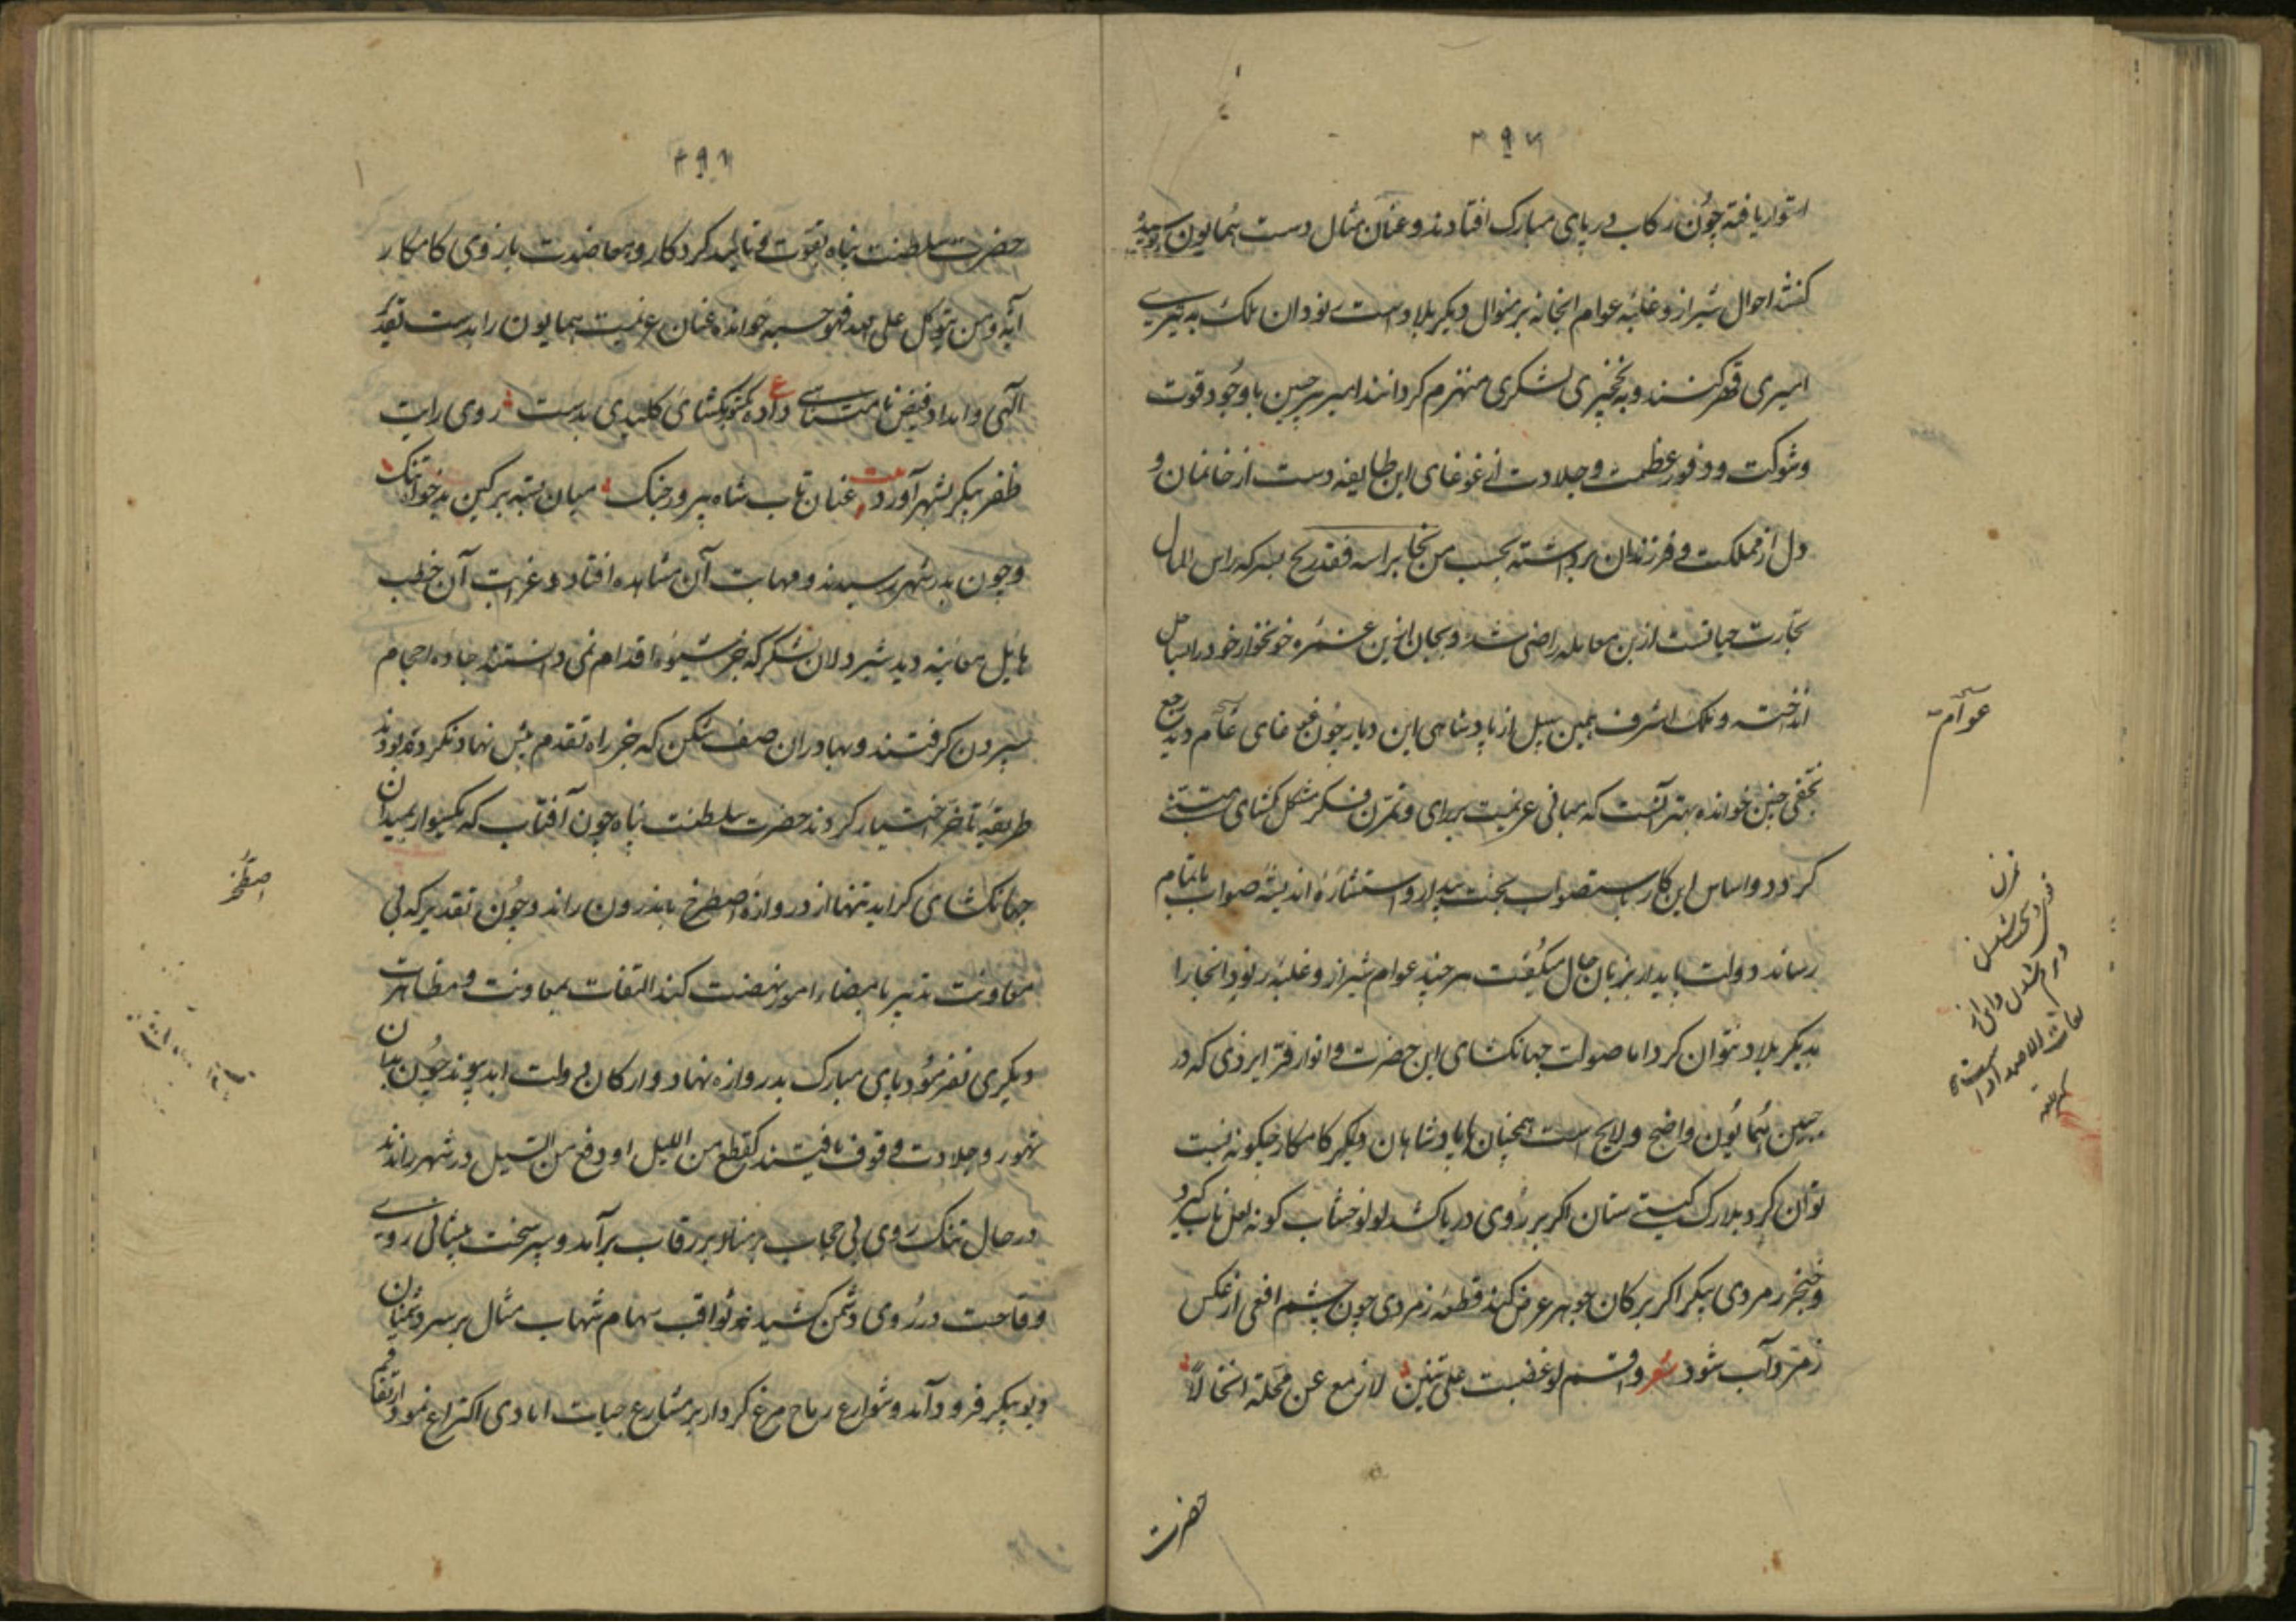 استوار یافته چون رکاب در پای مبارک افتادند و عنان مثال دست همایون بوسیده
کفتند احوال شیراز و غلبه عوام انجا نه بر منوال دیکر بلاد است نود ان ملک به تیری
امیری قهر کنند و به خنجری لشکری منهزم کردانند امیر پیر حسین با وجود قوت
و شوکت و وفور عظمت و جلادت از غوغای این طایفه دست از خانمان و
دل از مملکت و فرزندان برداشته بحسب من نجا براسه فقد ربح بسر که راس المال
تجارت حیاتست ازین معامله راضی شد و بجان ازین غمره خونخوار خود را بساحل
انداخته و ملک اشرف بهمین سبیل از پادشاهی این دیار چون
بخفی حنین خوانده بهتر آنست که مبانی عزیمت بر رای و تمرن فکر مشکل کشای مبتنی
کردد و اساس این کار باستصواب بخت بیدار و استشاره اندیشه صواب باتمام
رساند دولت پایدار بزبان حال میکفت هر چند عوام شیراز و غلبه رنود انجا را
بدیکر بلاد نتوان کرد اما صولت جهانکشای این حضرت و انوار فر ایزدی که در
جبین همایون واضح و لایح است همچنان با پادشاهان دیکر کامکار چکونه نسبت
توان کرد بلارک کیتی ستان اکر بر روی دریا کشد لولو خوشاب کونه لعل ناب کیرد
و خنجر زمردی پیکر اکر بر کان جوهر عرض کند قطعه زمردی چون چشم افعی از عکس
زمرد آب شود شعر واقسم لو غضبت علی ثبیر لازمع عن محلته ارتحالا
حضرت
عوام
۲۹۶
حضرت سلطنت پناه بقوت و تائید کردکار و معاضدت بازوی کامکار
آیه و من یتوکل علی الله فهو حسبه خوانده عنان عزیمت همایون را بدست تقدیر
الهی و امداد فیض نامتناهی داده ع کشورکشای کلیدی بدست روی رایت
ظفر پیکر بشهر آورد بیت عنان تاب شاه پیروز جنک میان بسته بر کین بدخواه تنک
و چون بدر شهر رسیدند و مهابت آن مشاهده افتاد و غرابت آن خطب
هایل معاینه دید شیردلان لشکر که جز شیوه اقدام نمی دانستند جاده احجام
سپردن کرفتند و بهادران صف شکن که جز راه تقدم پیش نهاد نکرده بودند
طریقه تاخر اختیار کردند حضرت سلطنت پناه چون آفتاب که یکسوار بمیدان
جهانکشای کراید تنها از دروازه اصطرخ باندرون راند و چون تقدیر که بی
معاونت تدبیر بامضاء امور نهضت کند التفات بمعاونت و مظاهرت
دیکری نفرمود پای مبارک بدروازه نهاد و ارکان دولت ابد پیوند چون بدان
تهور و جلادت وقوف یافتند کقطع من اللیل او دفع من السیل در شهر راندند
در حال تنک روی بی حجاب بر رقاب برآمد و سپر سخت پیشانی روی
وقاحت در روی دشمن کشید و ثواقب سهام شهاب مثال بر سر دشمنان
دیو پیکر فرود آمد و شوارع رماح مرغ کردار بر مشارع حیات اعادی اکتراع نمود
اصطخر